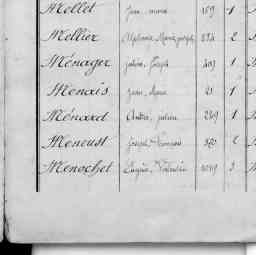 Mellet Jean, marie 159 1
Mellier Alphonse, Marie, joseph 224 2
Ménager julien, Joseph 1
Menais Jean, Marie 1
Ménard julien 1
Meneust Joseph, François 2
Menochet Eugène, Valentin 3